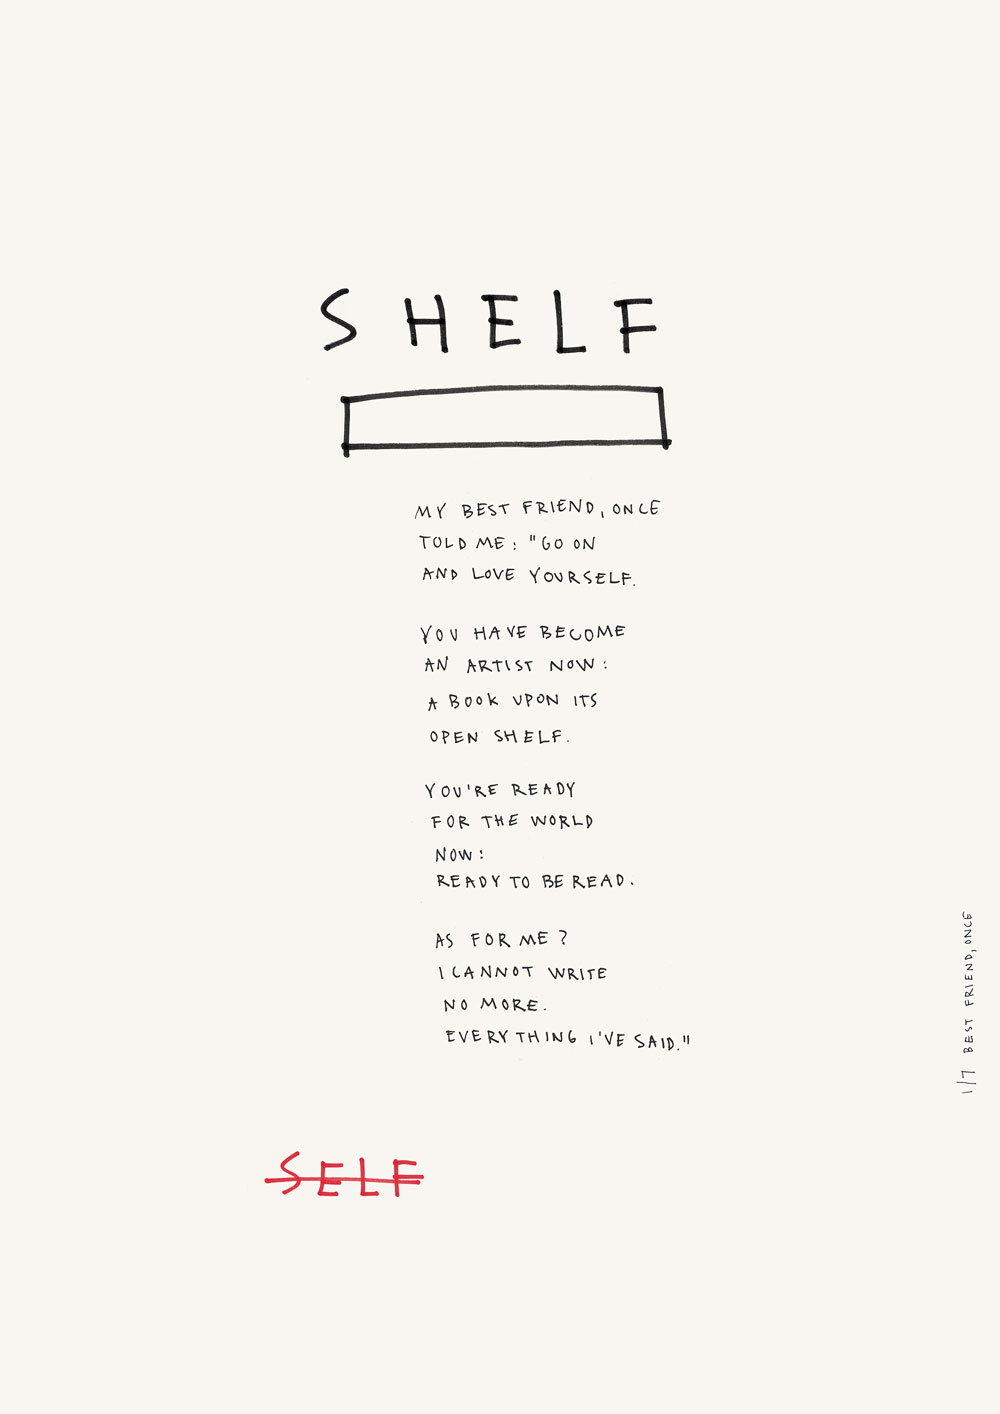 SHELF
MY BEST FRIEND, ONCE
TOLD ME: "GO ON
AND LOVE YOURSELF.
YOU HAVE BECOME
AN ARTIST NOW:
A BOOK UPON ITS
OPEN SHELF.
YOU'RE READY
FOR THE WORLD
NOW:
READY TO BE READ.
AS FOR ME?
I CANNOT WRITE
NO MORE.
EVERYTHING I'VE SAID."
SELF
1/7 BEST FRIEND, ONCE